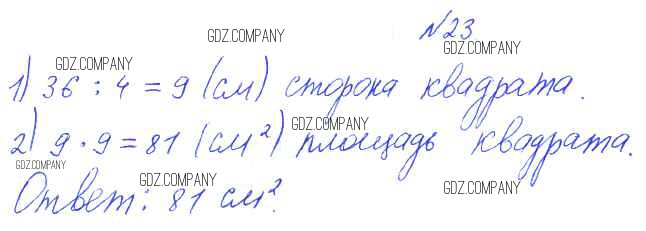 GDZ.COMPANY №23
GDZ.COMPANY GDZ.COMPANY
1) 36 : 4 = 9 (см) сторона квадрата.
GDZ.COMPANY
2) 9 · 9 = 81 (см²) площадь квадрата.
GDZ.COMPANY GDZ.COMPANY GDZ.COMPANY
Ответ: 81 см².